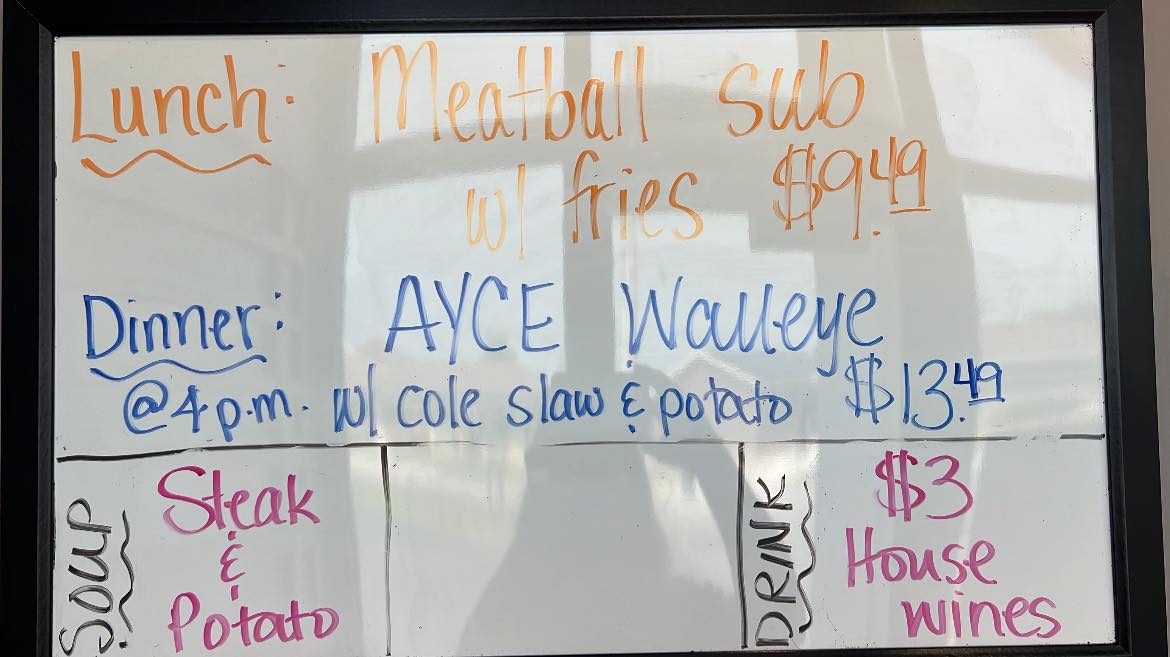 Lunch: Meatball sub
w/ fries $9.49
Dinner: AYCE Walleye
@4p.m. w/ cole slaw & potato $13.49
SOUP
Steak
&
Potato
DRINK
$3
House
wines